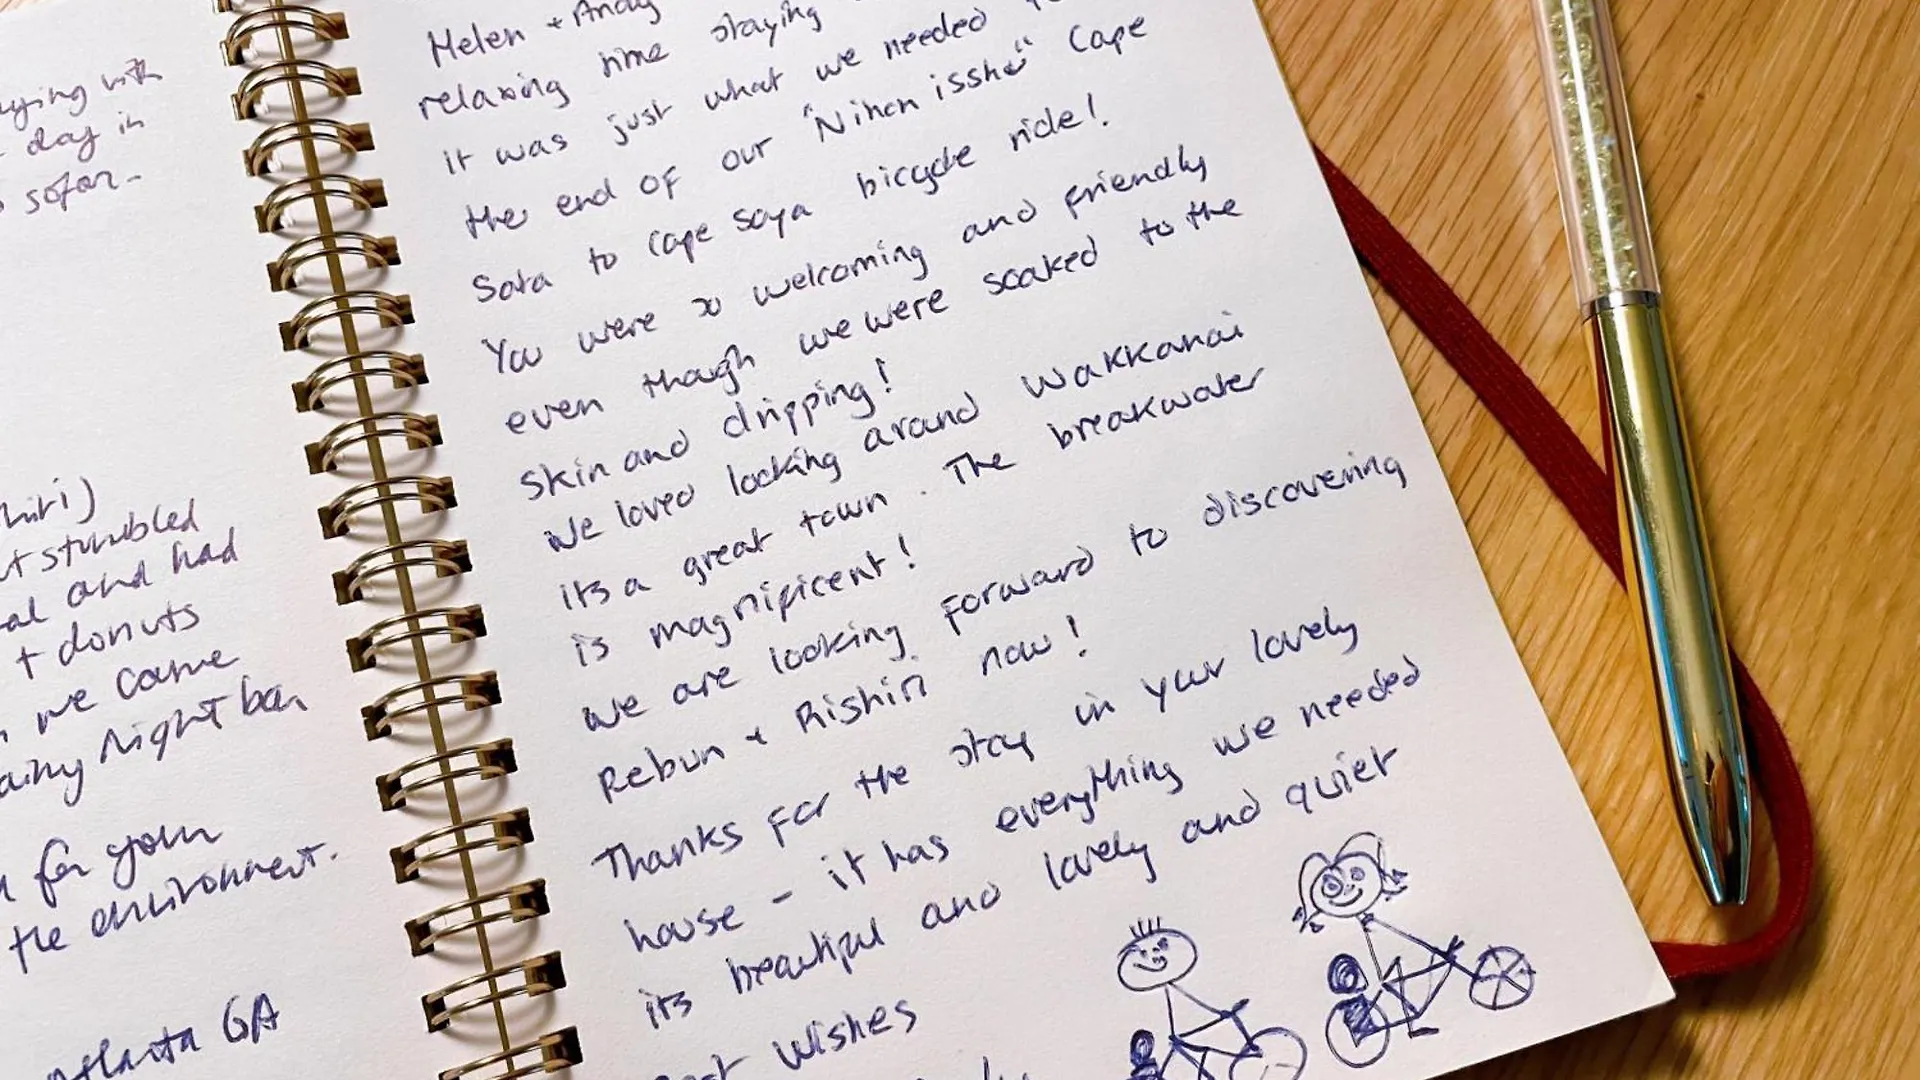 with
day in
sofar-
stumbled
and had
+ donuts
we came
Night bar
for your
the environment.
Atlanta GA
Helen + Andy
relaxing time staying
it was just what we needed
the end of our "Nihon isshu" Cape
Sata to Cape Soya bicycle ride!
You were so welcoming and friendly
even though we were soaked to the
skin and dripping!
We loved looking around Wakkanai
its a great town. The breakwater
is magnificent!
We are looking forward to discovering
Rebun + Rishiri now!
Thanks for the stay in your lovely
house - it has everything we needed
its beautiful and lovely and quiet
Wishes